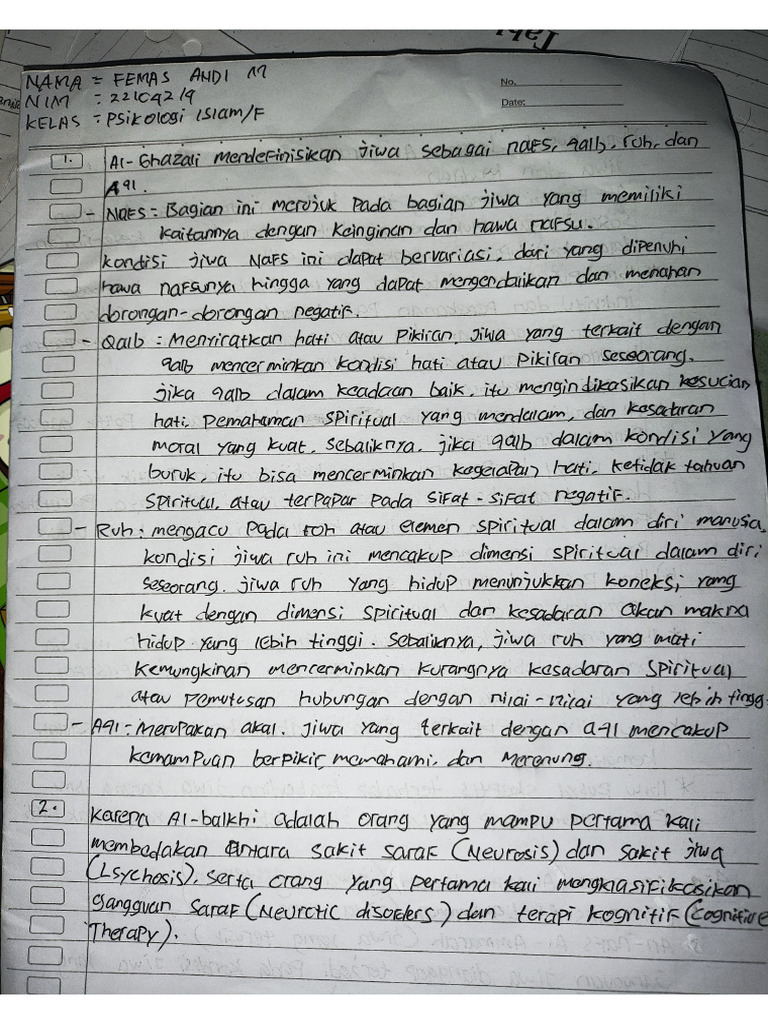 NAMA = FEMAS ANDI M
NIM : 22104219
KELAS = PSIKOLOGI ISLAM/F
No.
Date:
1. Al-Ghazali mendefinisikan jiwa sebagai nafs, qalb, ruh, dan
Aql.
- Nafs = Bagian ini merujuk pada bagian jiwa yang memiliki
kaitannya dengan keinginan dan hawa nafsu.
kondisi jiwa Nafs ini dapat bervariasi, dari yang dipenuhi
hawa nafsunya hingga yang dapat mengendalikan dan menahan
dorongan-dorongan negatif.
- Qalb : Menyiratkan hati atau pikiran. Jiwa yang terkait dengan
qalb mencerminkan kondisi hati atau pikiran seseorang.
jika qalb dalam keadaan baik, itu mengindikasikan kesucian
hati, pemahaman spiritual yang mendalam, dan kesadaran
moral yang kuat. sebaliknya, jika qalb dalam kondisi yang
buruk, itu bisa mencerminkan kegelapan hati, ketidak tahuan
spiritual, atau terpapar pada sifat-sifat negatif.
- Ruh : mengacu pada roh atau elemen spiritual dalam diri manusia,
kondisi jiwa ruh ini mencakup dimensi spiritual dalam diri
seseorang. jiwa ruh yang hidup menunjukkan koneksi yang
kuat dengan dimensi spiritual dan kesadaran akan makna
hidup yang lebih tinggi. Sebaliknya, jiwa ruh yang mati
kemungkinan mencerminkan kurangnya kesadaran spiritual
atau pemutusan hubungan dengan nilai-nilai yang lebih tinggi.
- Aql = Merupakan akal. Jiwa yang terkait dengan aql mencakup
kemampuan berpikir, memahami, dan merenung.
2. Karena Al-balkhi adalah orang yang mampu pertama kali
membedakan antara sakit saraf (Neurosis) dan sakit jiwa
(Lsychosis), serta orang yang pertama kali mengklasifikasikan
gangguan saraf (Neurotic disorders) dan terapi kognitif (Cognitive
Therapy).